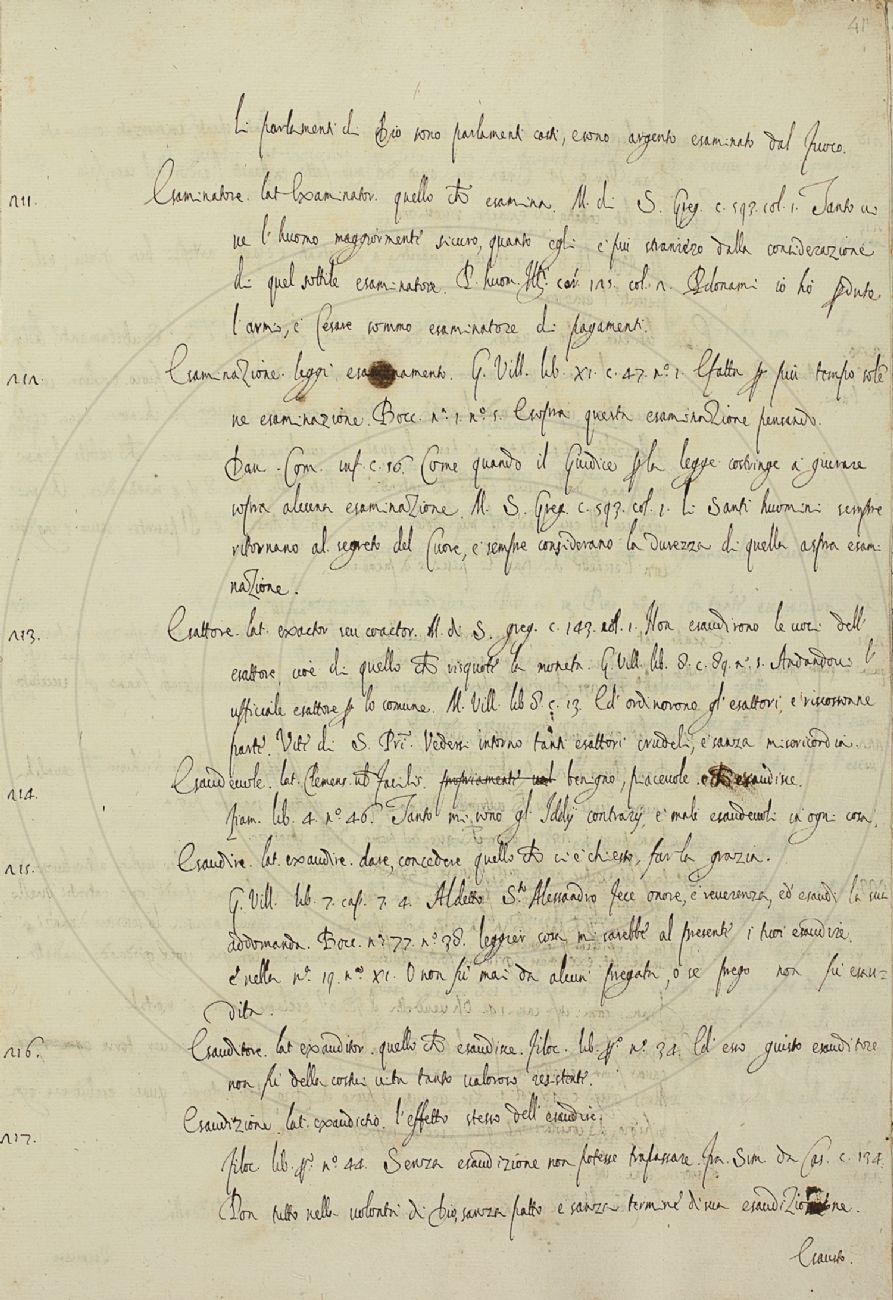 41
li parlamenti di Dio sono parlamenti casti, e sono argento esaminato dal fuoco.
211. Esaminatore. lat. Examinator. quello che esamina. M. di S. Greg. c. 593. col. 1. Tanto vi
ve l'huomo maggiormente sicuro, quanto egli è più straniero dalla considerazione
di quel sottile esaminatore. P. huom. Ill. car. 125. col. 2. Pdonami io hò pdute
l'armi, è Cesare sommo esaminatore di pagamenti.
212. Esaminazione. leggi namento. G. Vill. lib. XI. c. 47. n.° 1. E fatta p più tempo sole
ne esaminazione. Bocc. n.° 1. n.° 5. E sopra questa esaminazione pensando.
Dan. Com. inf. c. 16. Come quando il Giudice p la legge costringe à giurare
sopra alcuna esaminazione. M. S. Greg. c. 593. col. 1. li Santi huomini sempre
ritornano al segreto del Cuore, e sempre considerano la durezza di quella aspra esami
nazione.
213. Esattore. lat. exactor seu coactor. M. di S. greg. c. 143. col. 1. Non esaudirono le voci dell'
esattore, cioè di quello che risquote la moneta. G. Vill. lib. 8. c. 89. n.° 1. Andandovi l'
ufficiale esattore p lo comune. M. Vill. lib 8. c. 13. Ed' ordinorono gl' esattori, e riscossonne
parte. Vite di S. Pri. Vedersi intorno tanti esattori crudeli, e sanza misericordia.
214. Esaudevole. lat. Clemens. ut facilis. propriamente benigno, piacevole e che esaudisce.
fiam. lib. 4. n.° 46. Tanto mi sono gl' Iddij contrarij e male esaudevoli in ogni cosa.
215. Esaudire. lat. exaudire. dare, concedere quello che ci è chiesto, far la grazia.
G. Vill. lib. 7. cap. 7. 4. Al detto S.to Alessandro fece onore, e reverenza, ed' esaudì la sua
addomanda. Bocc. n.° 77. n.° 38. leggier cosa mi sarebbe al presente i tuoi esaudire.
e nella n.° 19. n.° XI. O non fù mai da alcun pregata, o se prego non fù esau=
dita.
216. Esauditore. lat exauditor. quello che esaudisce. filoc. lib. n.° 34. Ed' esso giusto esauditore
non fù della costei vita tanto valoroso resistente.
217. Esaudizione. lat. exauditio. l'effetto stesso dell'esaudire.
filoc. lib. n.° 44. Senza esaudizione non potesse trapassare. fra. Sim. da Cas. c. 134.
Pon tutto nella volontà di Dio, sanza patto e sanza termine di sua esaudizione.
Esausto.